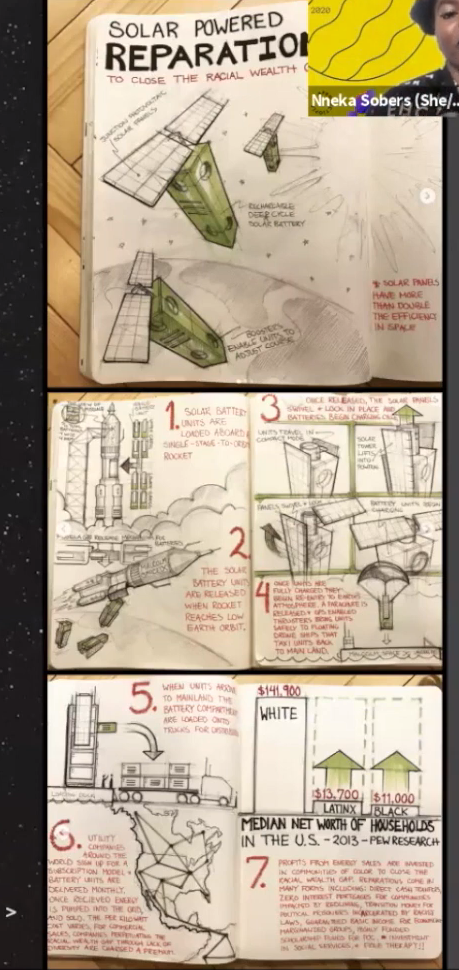 SOLAR POWERED
REPARATIO
TO CLOSE THE RACIAL WEALTH
2020
Nneka Sobers (She/...
SOLAR PANELS
RECHARGABLE
DEEP CYCLE
SOLAR BATTERY
BOOSTERS
ENABLE UNITS TO
ADJUST COURSE
SOLAR PANELS
HAVE MORE
THAN DOUBLE
THE EFFICIENCY
IN SPACE
1. SOLAR BATTERY
UNITS ARE
LOADED ABOARD
SINGLE-STAGE-TO-ORBIT
ROCKET
2
THE SOLAR
BATTERY UNITS
ARE RELEASED
WHEN ROCKET
REACHES LOW
EARTH ORBIT.
3 ONCE RELEASED, THE SOLAR PANELS
SWIVEL + LOCK IN PLACE AND
BATTERIES BEGIN CHARGING
UNITS TRAVEL IN
COMPACT MODE
SOLAR
TOWER
LIFTS
INTO
POSITION
PANELS SWIVEL + LOCK
BATTERY UNITS BEGIN
CHARGING
4 ONCE UNITS ARE
FULLY CHARGED THEY
BEGIN RE-ENTRY TO EARTH'S
ATMOSPHERE. A PARACHUTE IS
RELEASED + GPS ENABLED
THRUSTERS BRING UNITS
SAFELY TO FLOATING
DRONE SHIPS THAT
TAXI UNITS BACK
TO MAIN LAND.
5. WHEN UNITS ARRIVE
TO MAINLAND THE
BATTERY COMPARTMENTS
ARE LOADED ONTO
TRUCKS FOR
LOADING DOCK
6. UTILITY
COMPANIES
AROUND THE
WORLD SIGN UP FOR A
SUBSCRIPTION MODEL +
BATTERY UNITS ARE
DELIVERED MONTHLY.
ONCE RECIEVED ENERGY
IS PUMPED INTO THE GRID
AND SOLD. THE PER KILOWATT
COST VARIES, FOR COMMERCIAL
COMPANIES PERPETUATING THE
RACIAL WEALTH GAP THROUGH LACK OF
DIVERSITY ARE CHARGED A PREMIUM.
$141,900
WHITE
$13,700
LATINX
$11,000
BLACK
MEDIAN NET WORTH OF HOUSEHOLDS
IN THE U.S. - 2013 - PEW RESEARCH
7. PROFITS FROM ENERGY SALES ARE INVESTED
IN COMMUNITIES OF COLOR TO CLOSE THE
RACIAL WEALTH GAP. REPARATIONS COME IN
MANY FORMS INCLUDING: DIRECT CASH TRANSFERS,
ZERO INTEREST MORTGAGES FOR COMMUNITIES
IMPACTED BY REDLINING, TRANSITION MONEY FOR
POLITICAL PRISONERS INCARCERATED BY RACIST
LAWS, GUARANTEED BASIC INCOME FOR
MARGINALIZED GROUPS, HIGHLY FUNDED
SCHOLARSHIP FUNDS FOR POC + INVESTMENT
IN SOCIAL SERVICES, + FREE THERAPY!!